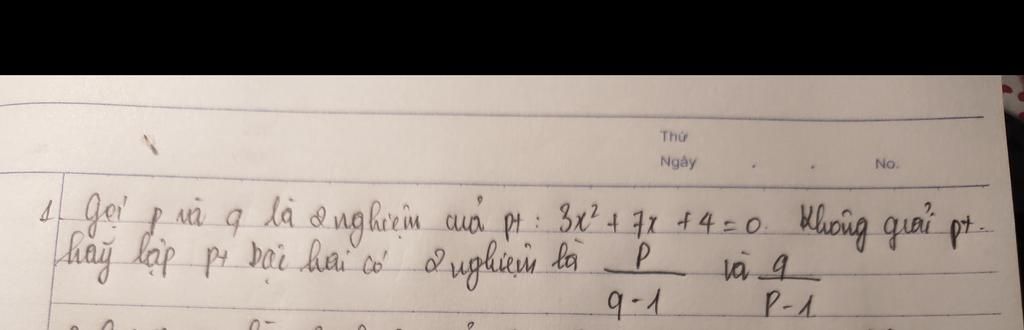 Thứ
Ngày . . No.
1. Gọi p và q là 2 nghiệm của pt: 3x² + 7x + 4 = 0. Không giải pt.
hãy lập pt bậc hai có 2 nghiệm là p/(q-1) và q/(p-1)